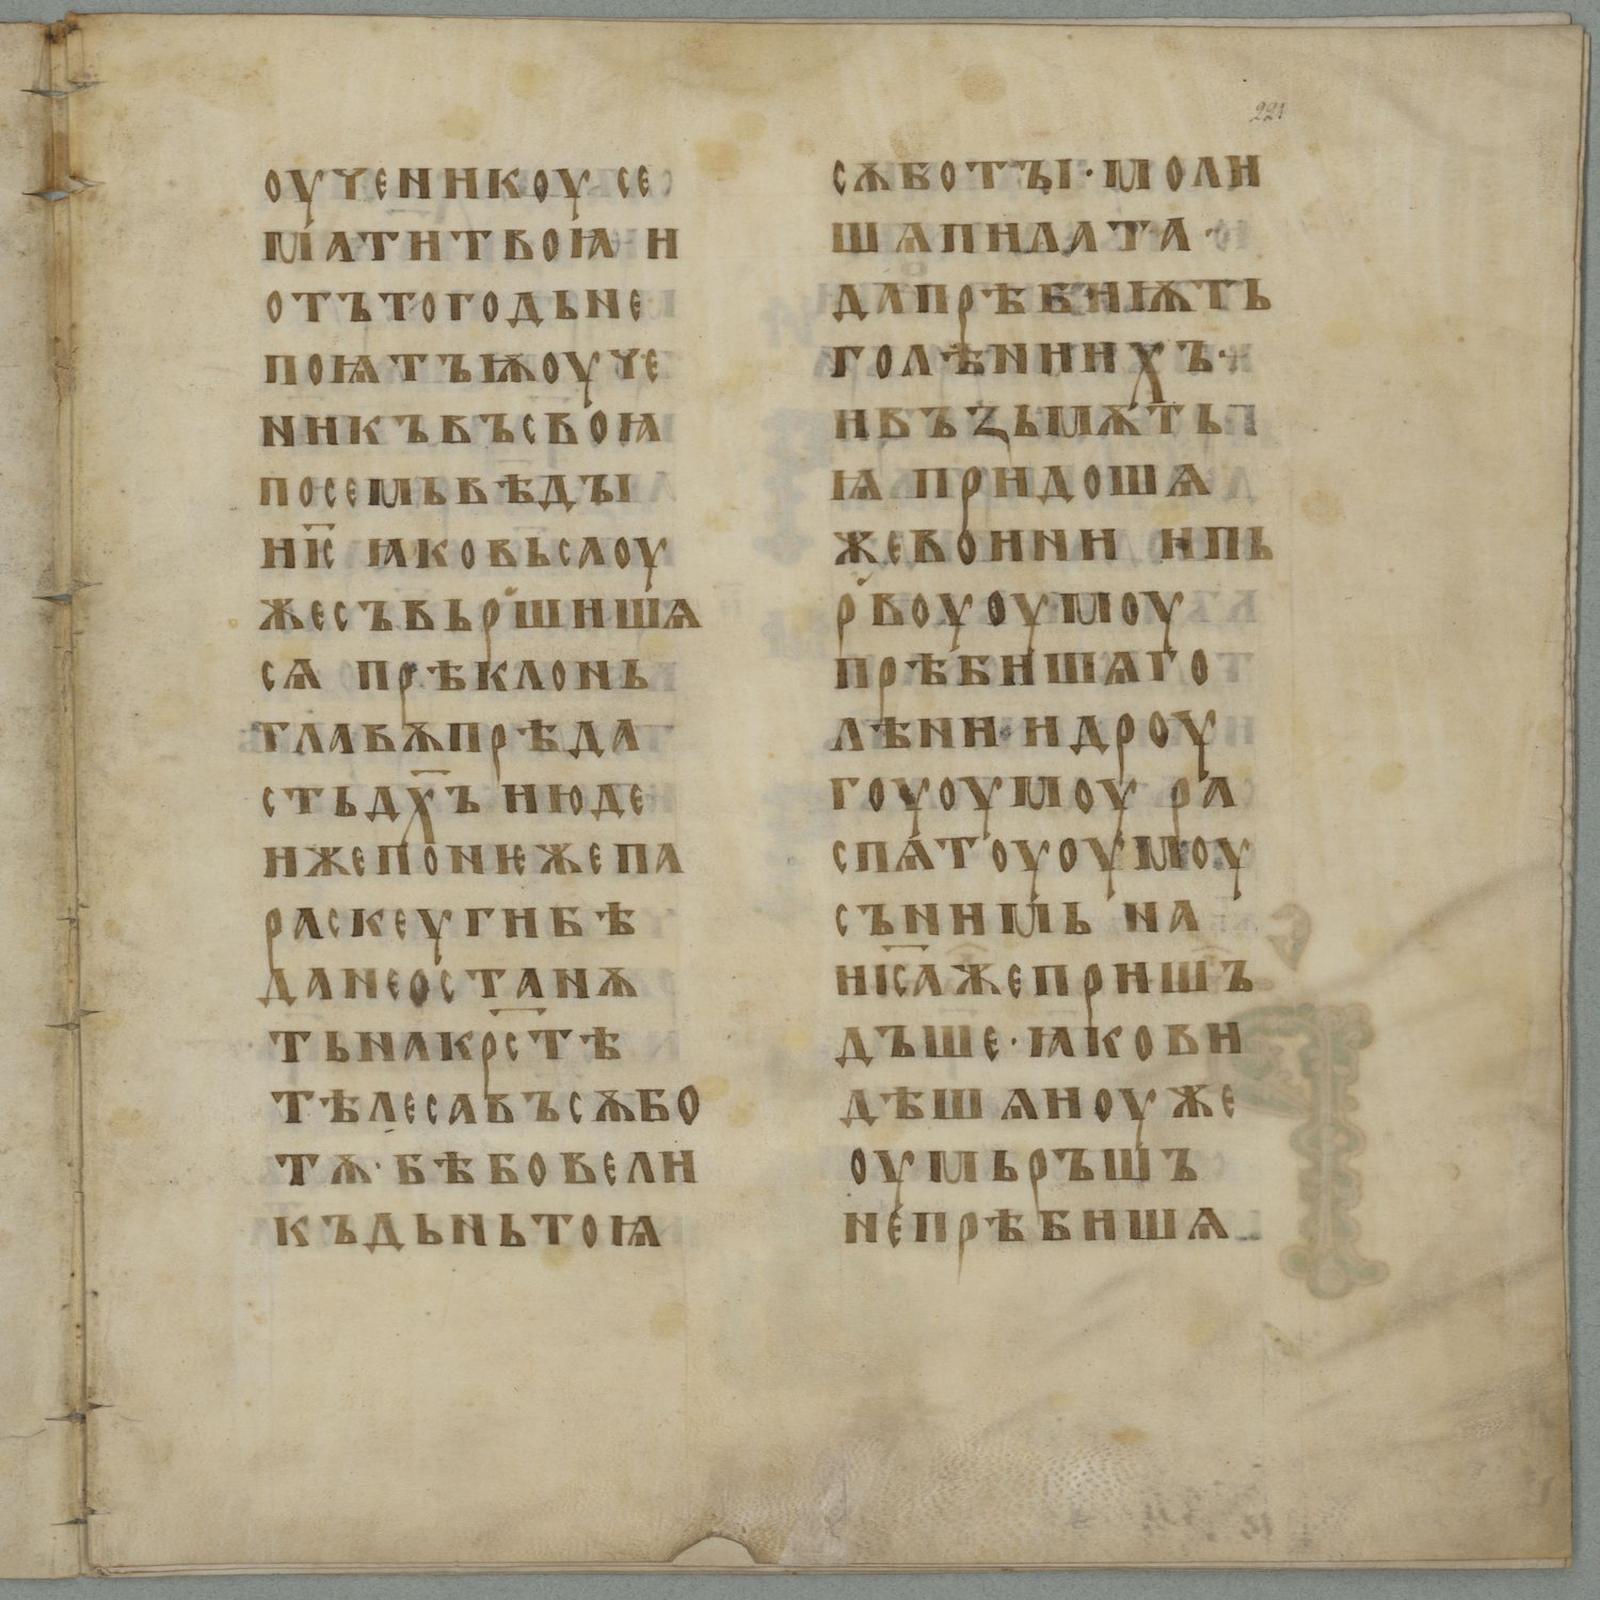 221
оученикоу се
мати твоꙗ и
отътогодьне
поꙗтъѭоуче
никъвъсвоꙗ
посемьвѣдꙑ
ни҃с ꙗковьсѧ оу
жесъвьр҆шишѧ
сѧ прѣклонь
главѫпрѣда
стьдх҃ъ июде
ижепонѥжепа
раскеуг҆ибѣ
данеостанѫ
тьнакрс҃тѣ
тѣлесавъсѫбо
тѫ· бѣбовели
къдьньтоꙗ
сѫботꙑ· моли
шѧпилата·
дапрѣбиѭть
голѣниихъ·
ивъзьмѫть
ꙗ придошѧ
жевоини ипь
р҆воуоумоу
прѣбишѧго
лѣни· идроу
гоуоумоу ра
спѧтоуоумоу
сънимь на
ни҃сажепришъ
дъше· ꙗкови
дѣшѧиоуже
оумьръшъ
непрѣбишѧ